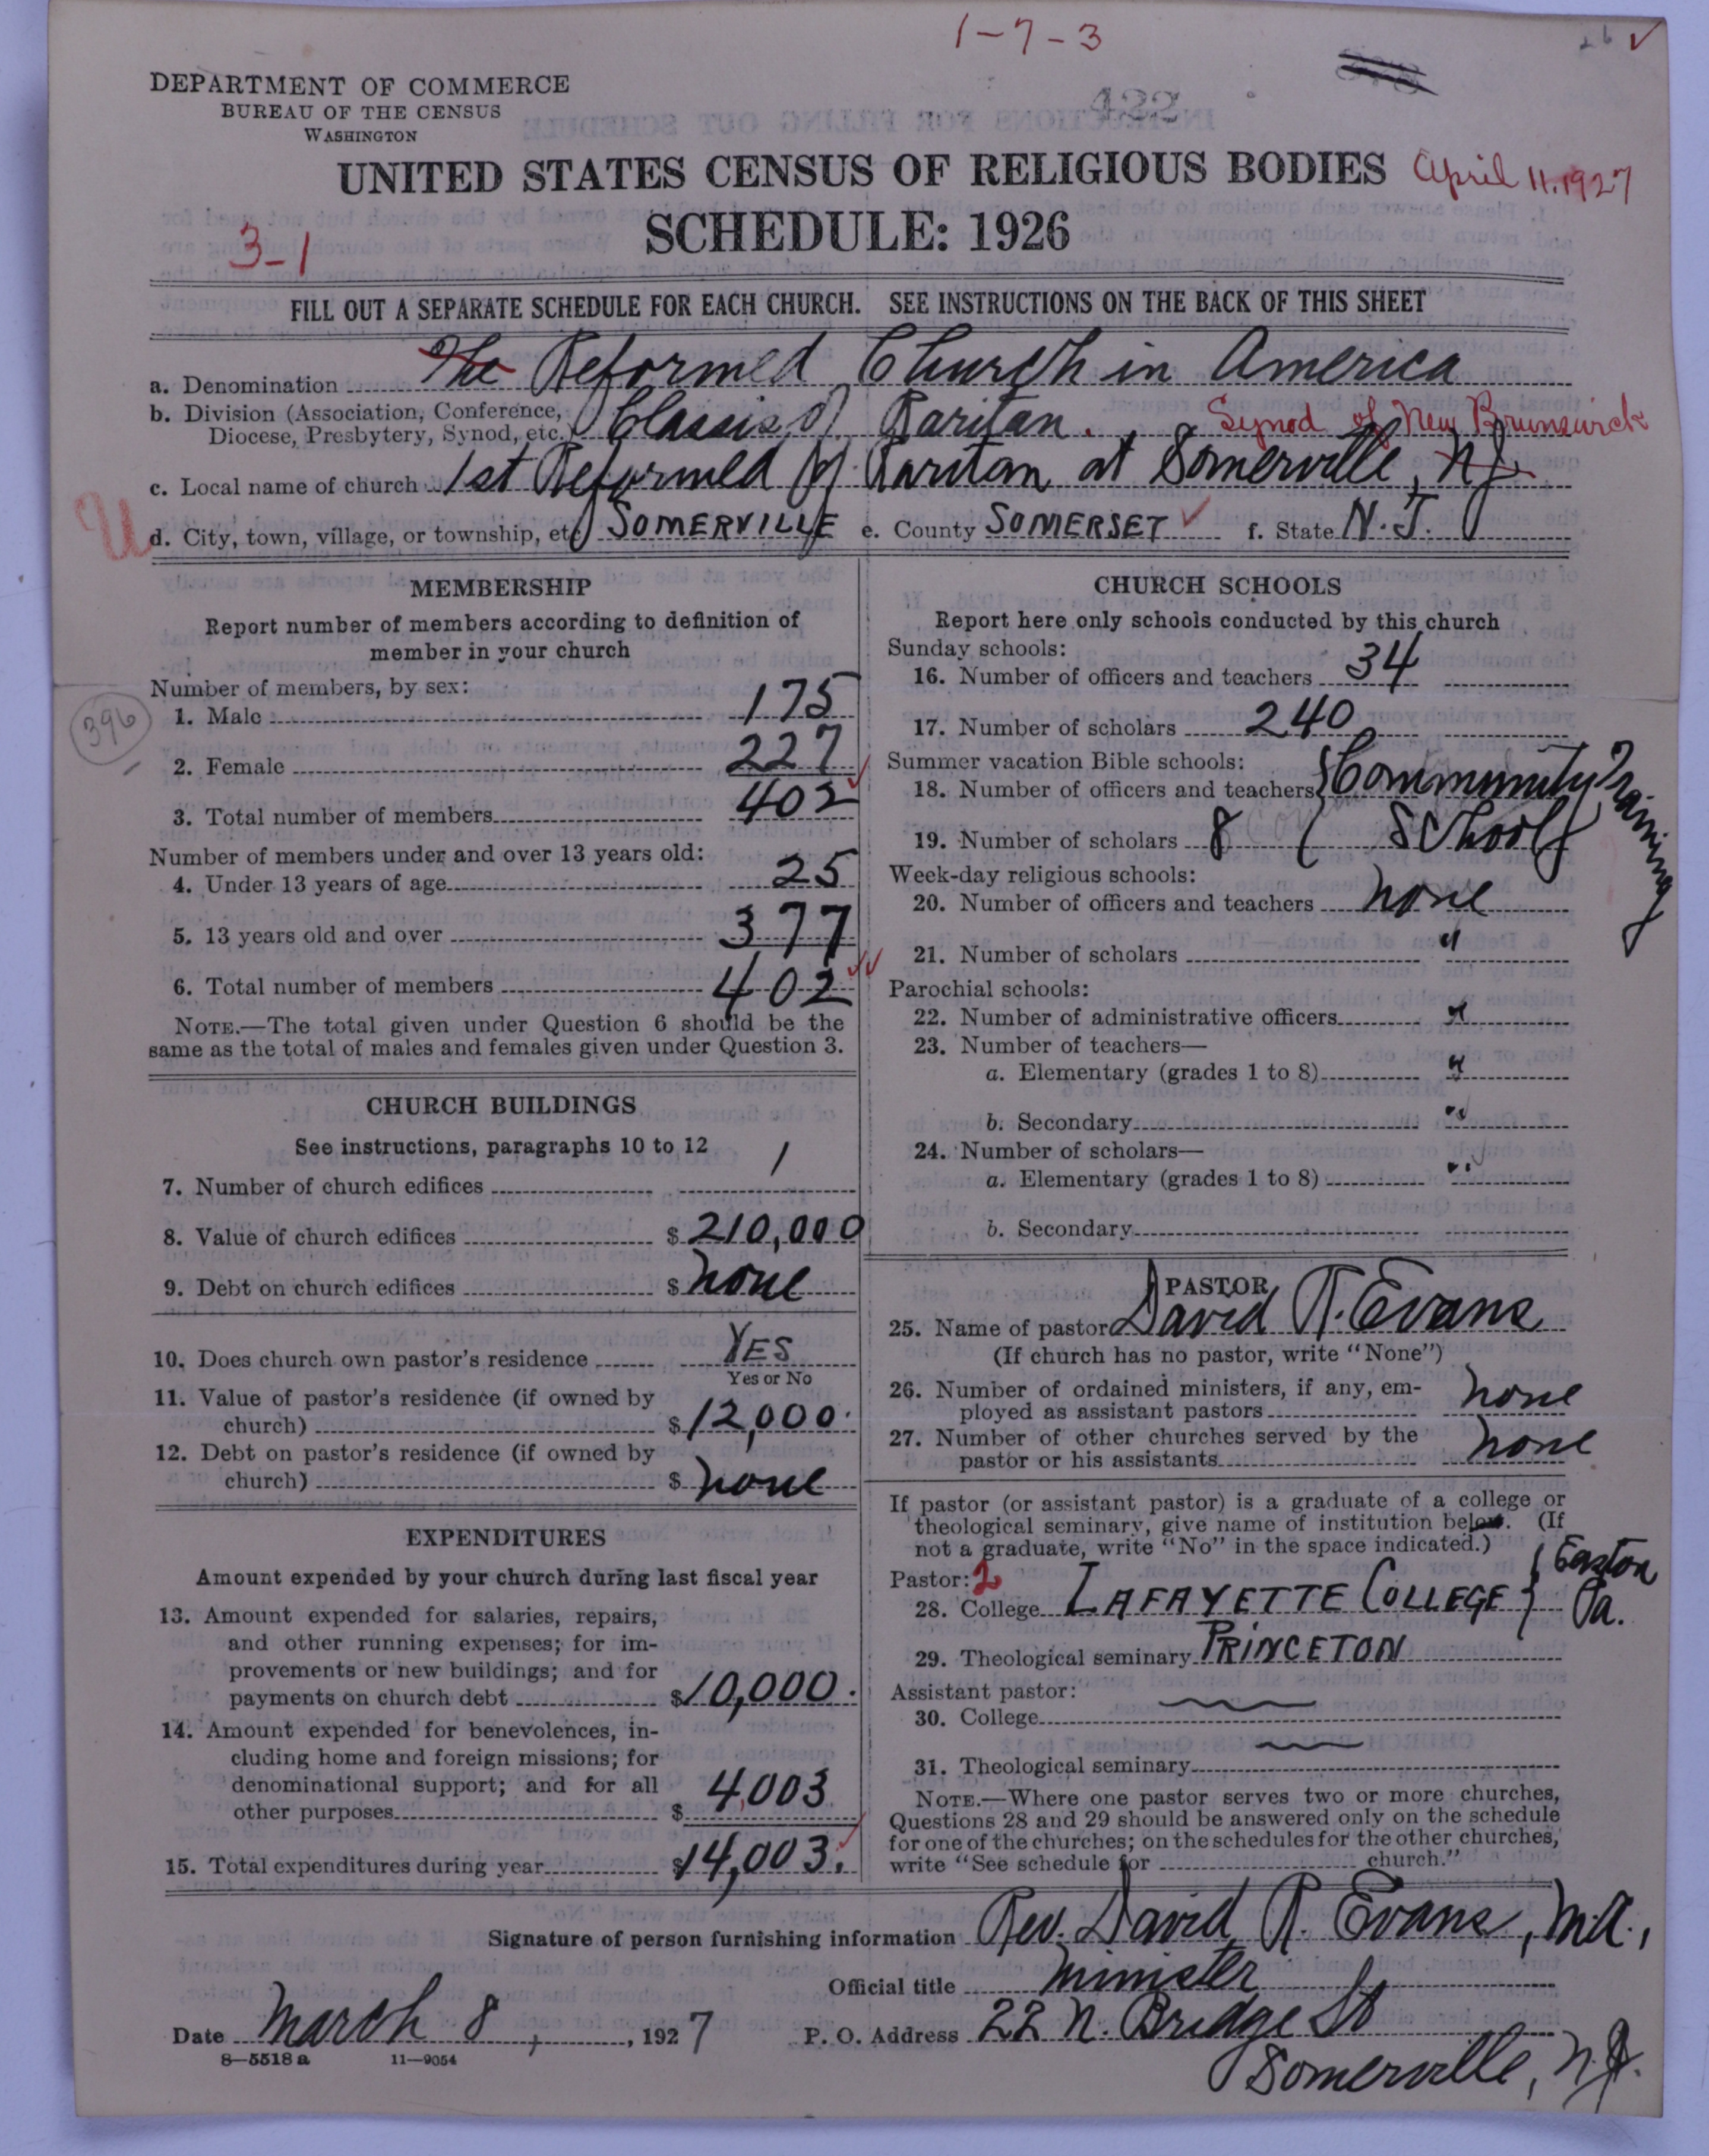 1-7-3
26 ✓
DEPARTMENT OF COMMERCE
BUREAU OF THE CENSUS
WASHINGTON
422
UNITED STATES CENSUS OF RELIGIOUS BODIES April 11, 1927
SCHEDULE: 1926
3-1
FILL OUT A SEPARATE SCHEDULE FOR EACH CHURCH. SEE INSTRUCTIONS ON THE BACK OF THIS SHEET
a. Denomination The Reformed Church in America
b. Division (Association, Conference, Diocese, Presbytery, Synod, etc.) Classis of Raritan. Synod of New Brunswick
c. Local name of church 1st Reformed of Raritan at Somerville, N.J.
U
d. City, town, village, or township, etc. SOMERVILLE e. County SOMERSET ✓ f. State N.J.
MEMBERSHIP
Report number of members according to definition of
member in your church
Number of members, by sex:
396
1. Male 175
2. Female 227
3. Total number of members 402 ✓
Number of members under and over 13 years old:
4. Under 13 years of age 25
5. 13 years old and over 377
6. Total number of members 402 ✓✓
NOTE.—The total given under Question 6 should be the
same as the total of males and females given under Question 3.
CHURCH BUILDINGS
See instructions, paragraphs 10 to 12
7. Number of church edifices 1
8. Value of church edifices $210,000
9. Debt on church edifices $none
10. Does church own pastor's residence YES
Yes or No
11. Value of pastor's residence (if owned by
church) $12,000.
12. Debt on pastor's residence (if owned by
church) $none
EXPENDITURES
Amount expended by your church during last fiscal year
13. Amount expended for salaries, repairs,
and other running expenses; for im-
provements or new buildings; and for
payments on church debt $10,000.
14. Amount expended for benevolences, in-
cluding home and foreign missions; for
denominational support; and for all
other purposes $4,003
15. Total expenditures during year $14,003. ✓
CHURCH SCHOOLS
Report here only schools conducted by this church
Sunday schools:
16. Number of officers and teachers 34
17. Number of scholars 240
Summer vacation Bible schools:
18. Number of officers and teachers { Community Training
19. Number of scholars 8 ( School
Week-day religious schools:
20. Number of officers and teachers none
21. Number of scholars "
Parochial schools:
22. Number of administrative officers "
23. Number of teachers—
a. Elementary (grades 1 to 8) "
b. Secondary "
24. Number of scholars—
a. Elementary (grades 1 to 8) "
b. Secondary
PASTOR
25. Name of pastor David R. Evans
(If church has no pastor, write "None")
26. Number of ordained ministers, if any, em-
ployed as assistant pastors none
27. Number of other churches served by the
pastor or his assistants none
If pastor (or assistant pastor) is a graduate of a college or
theological seminary, give name of institution below. (If
not a graduate, write "No" in the space indicated.)
Pastor: 2
28. College LAFAYETTE COLLEGE } { Easton Pa.
29. Theological seminary PRINCETON
Assistant pastor:
30. College
31. Theological seminary
NOTE.—Where one pastor serves two or more churches,
Questions 28 and 29 should be answered only on the schedule
for one of the churches; on the schedules for the other churches,
write "See schedule for church."
Signature of person furnishing information Rev. David R. Evans, M.A.,
Official title Minister
Date March 8, 1927 P. O. Address 22 N. Bridge St
8—5518a 11—9054
Somerville, N.J.